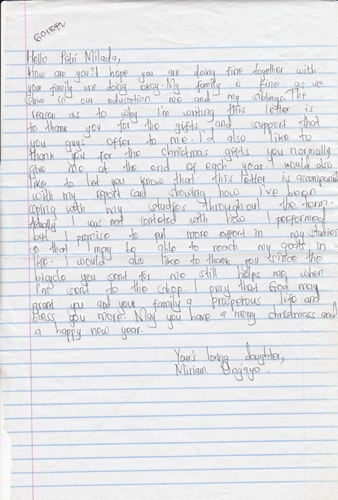 601842
Hello Petri Milada,
How are you? I hope you are doing fine together with
your family are doing okay. My family is fine as we
strive in our education me and my siblings. The
reason as to why I'm writing this letter is
to thank you for the gifts and support that
you guys offer to me. I'd also like to
thank you for the christmas gifts you normally
give me at the end of each year. I would also
like to let you know that this letter is accompanied
with my report card showing how I've been
coping with my studies throughout the term.
Actually I was not contented with how I performed
but I promise to put more effort in my studies
so that I may be able to reach my goals in
life. I would also like to thank you since the
bicycle you sent for me still helps me when
I'm sent to the shop. I pray that God may
grant you and your family a prosperous life and
bless you more. May you have a merry christmass and
a happy new year.
Your's loving daughter,
Miriam